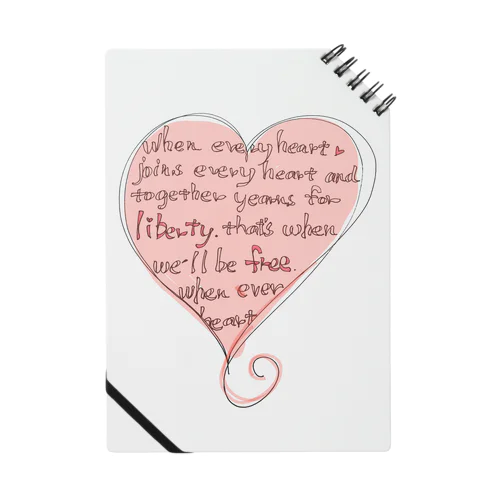 when every heart
joins every heart and
together yearns for
liberty. that's when
we'll be free.
when ever
heart